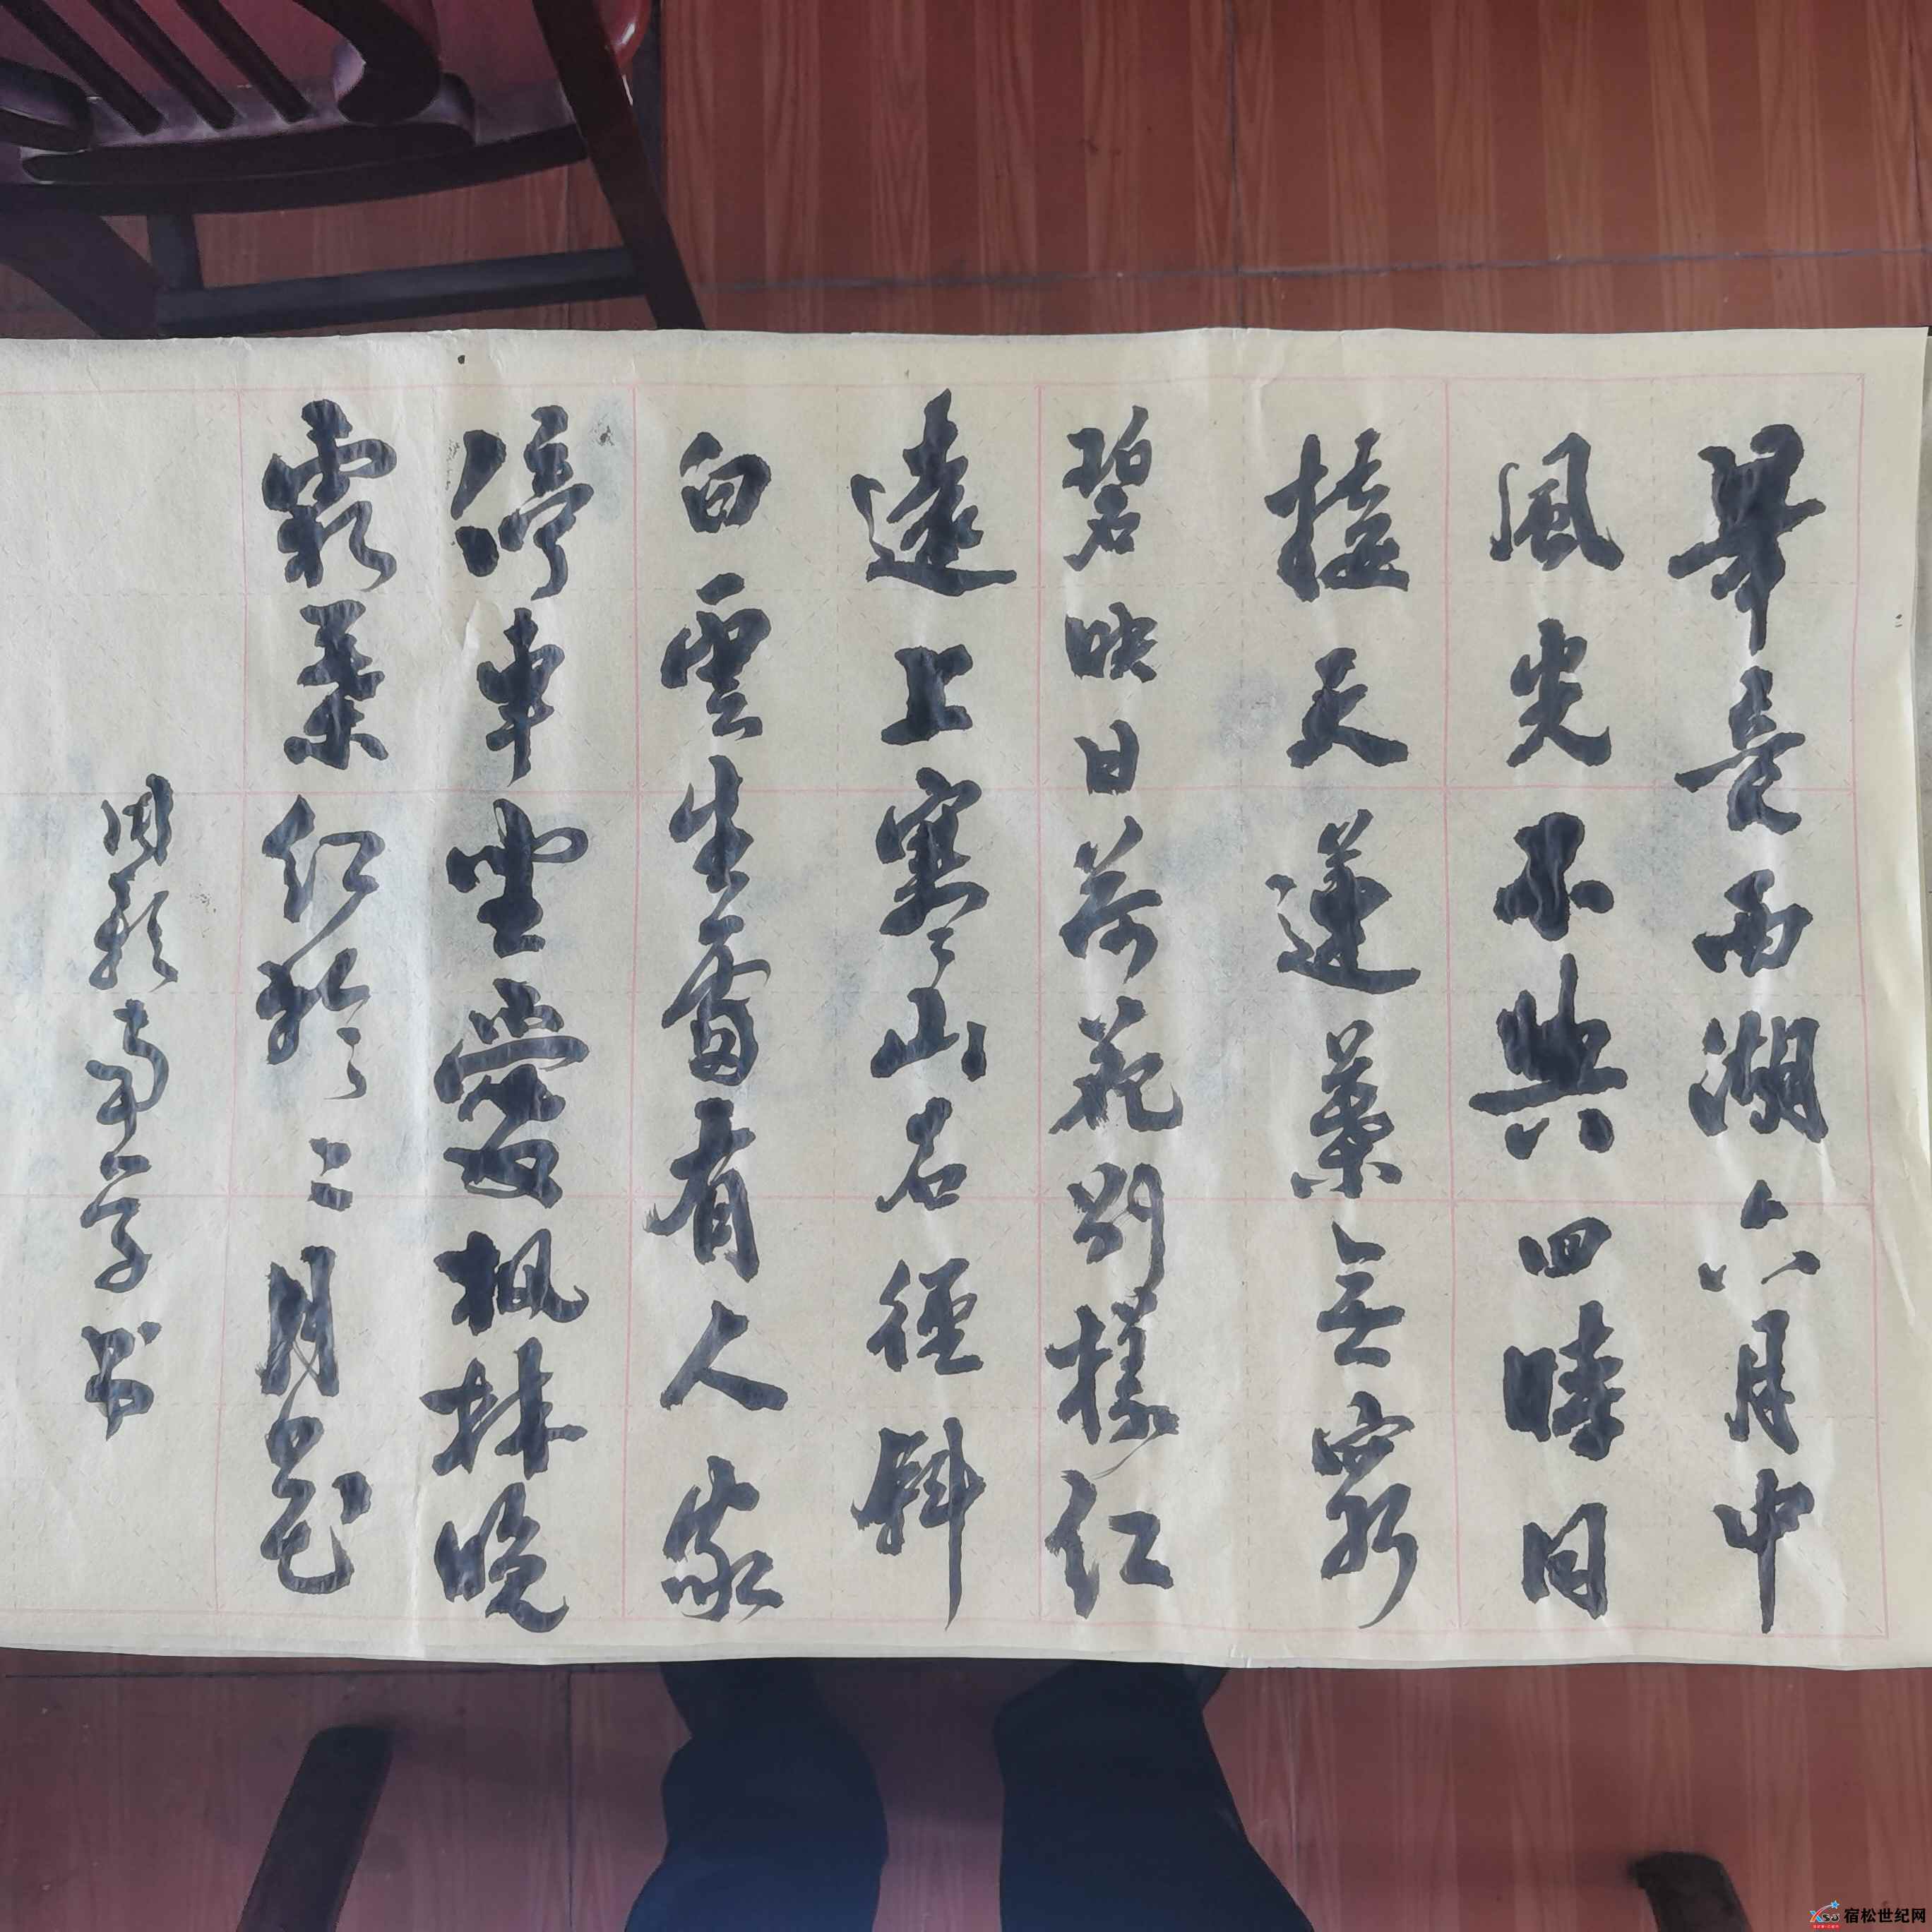 畢竟西湖六月中
風光不與四時同
接天蓮葉無窮
碧映日荷花別樣红
遠上寒山石徑斜
白雲生處有人家
停車坐愛楓林晚
霜葉红於二月花
书
宿松世纪网